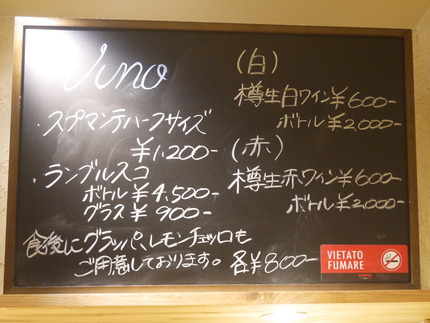 Vino
・スプマンテハーフサイズ
¥1,200-
・ランブルスコ
ボトル ¥4,500-
グラス ¥900-
(白)
樽生白ワイン¥600-
ボトル¥2,000-
(赤)
樽生赤ワイン¥600-
ボトル¥2,000-
食後にグラッパ、レモンチェッロも
ご用意しております。各¥800-
VIETATO
FUMARE